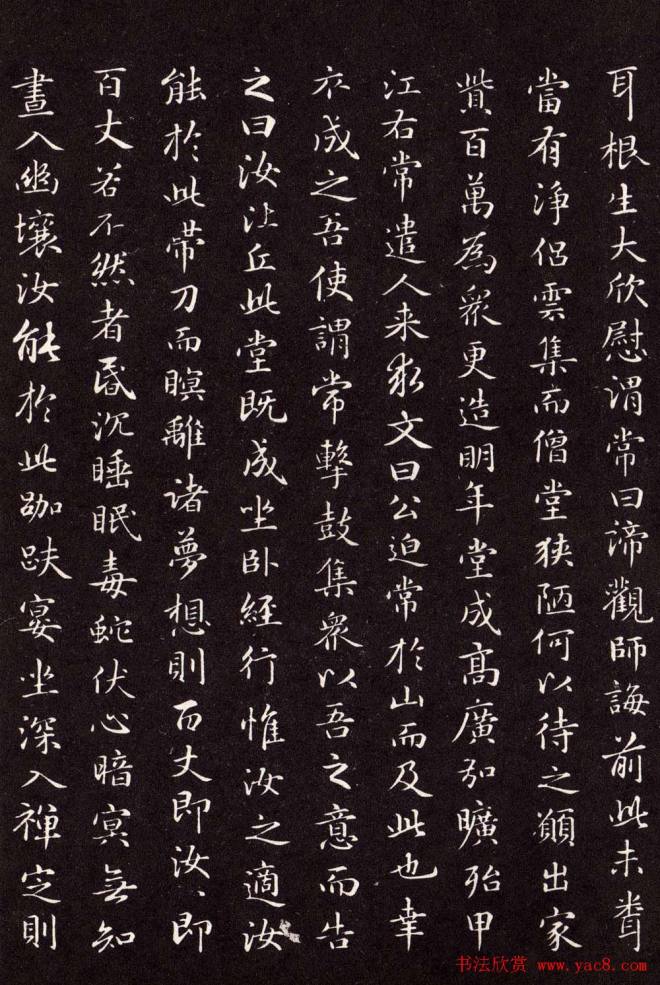 耳根生大欣慰謂常曰諦觀師誨前此未聞
當有淨侶雲集而僧堂狹陋何以待之願出家
貲百萬為眾更造明年堂成高廣加曠殆甲
江右常遣人来求文曰公迫常於山而及此也幸
卒成之吾使謂常擊鼓集眾以吾之意而告
之曰汝比丘此堂既成坐卧經行惟汝之適汝
能於此帶刀而瞑離諸夢想則百丈即汝〻即
百丈若不然者昏沉睡眠毒蛇伏心暗冥無知
晝入幽壤汝能於此跏趺宴坐深入禪定則
书法欣赏 www.yac8.com